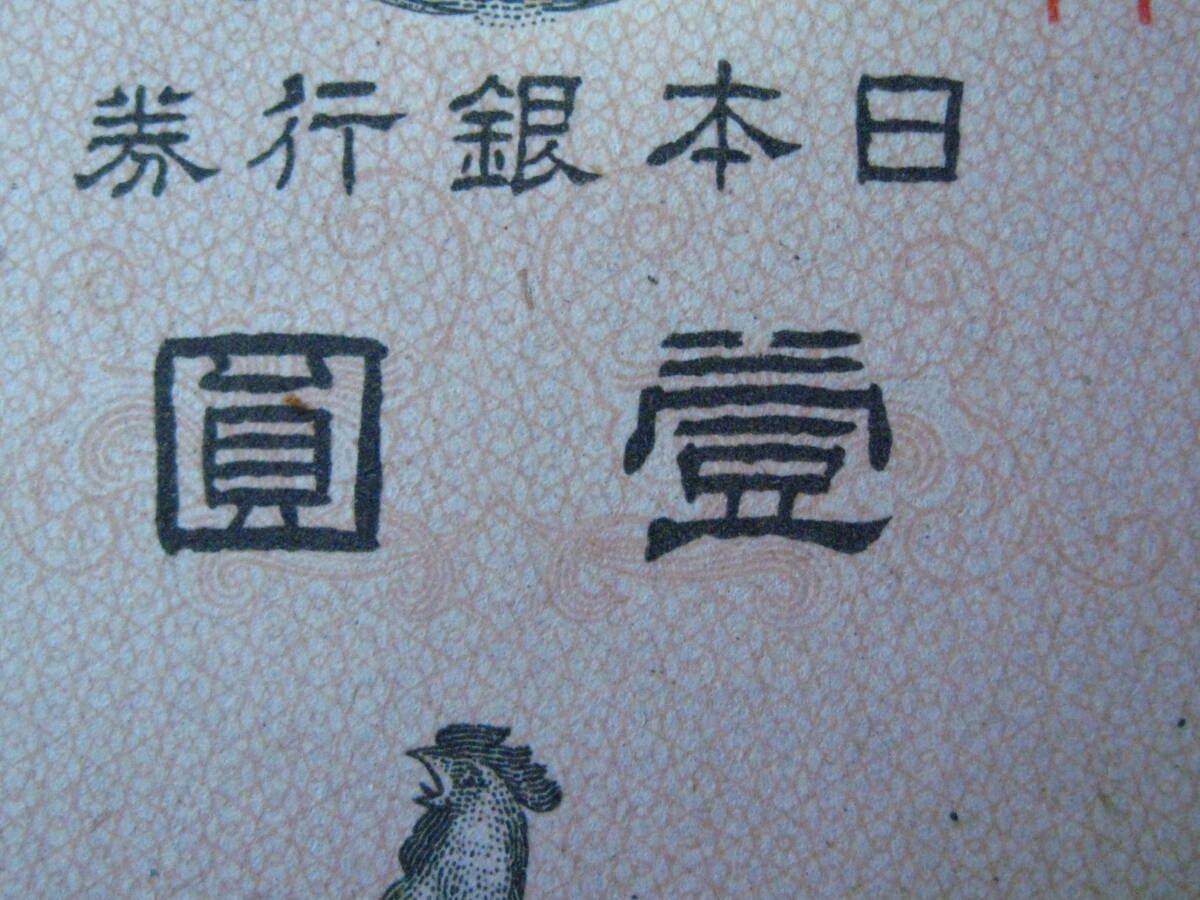 日本銀行券
壹圓